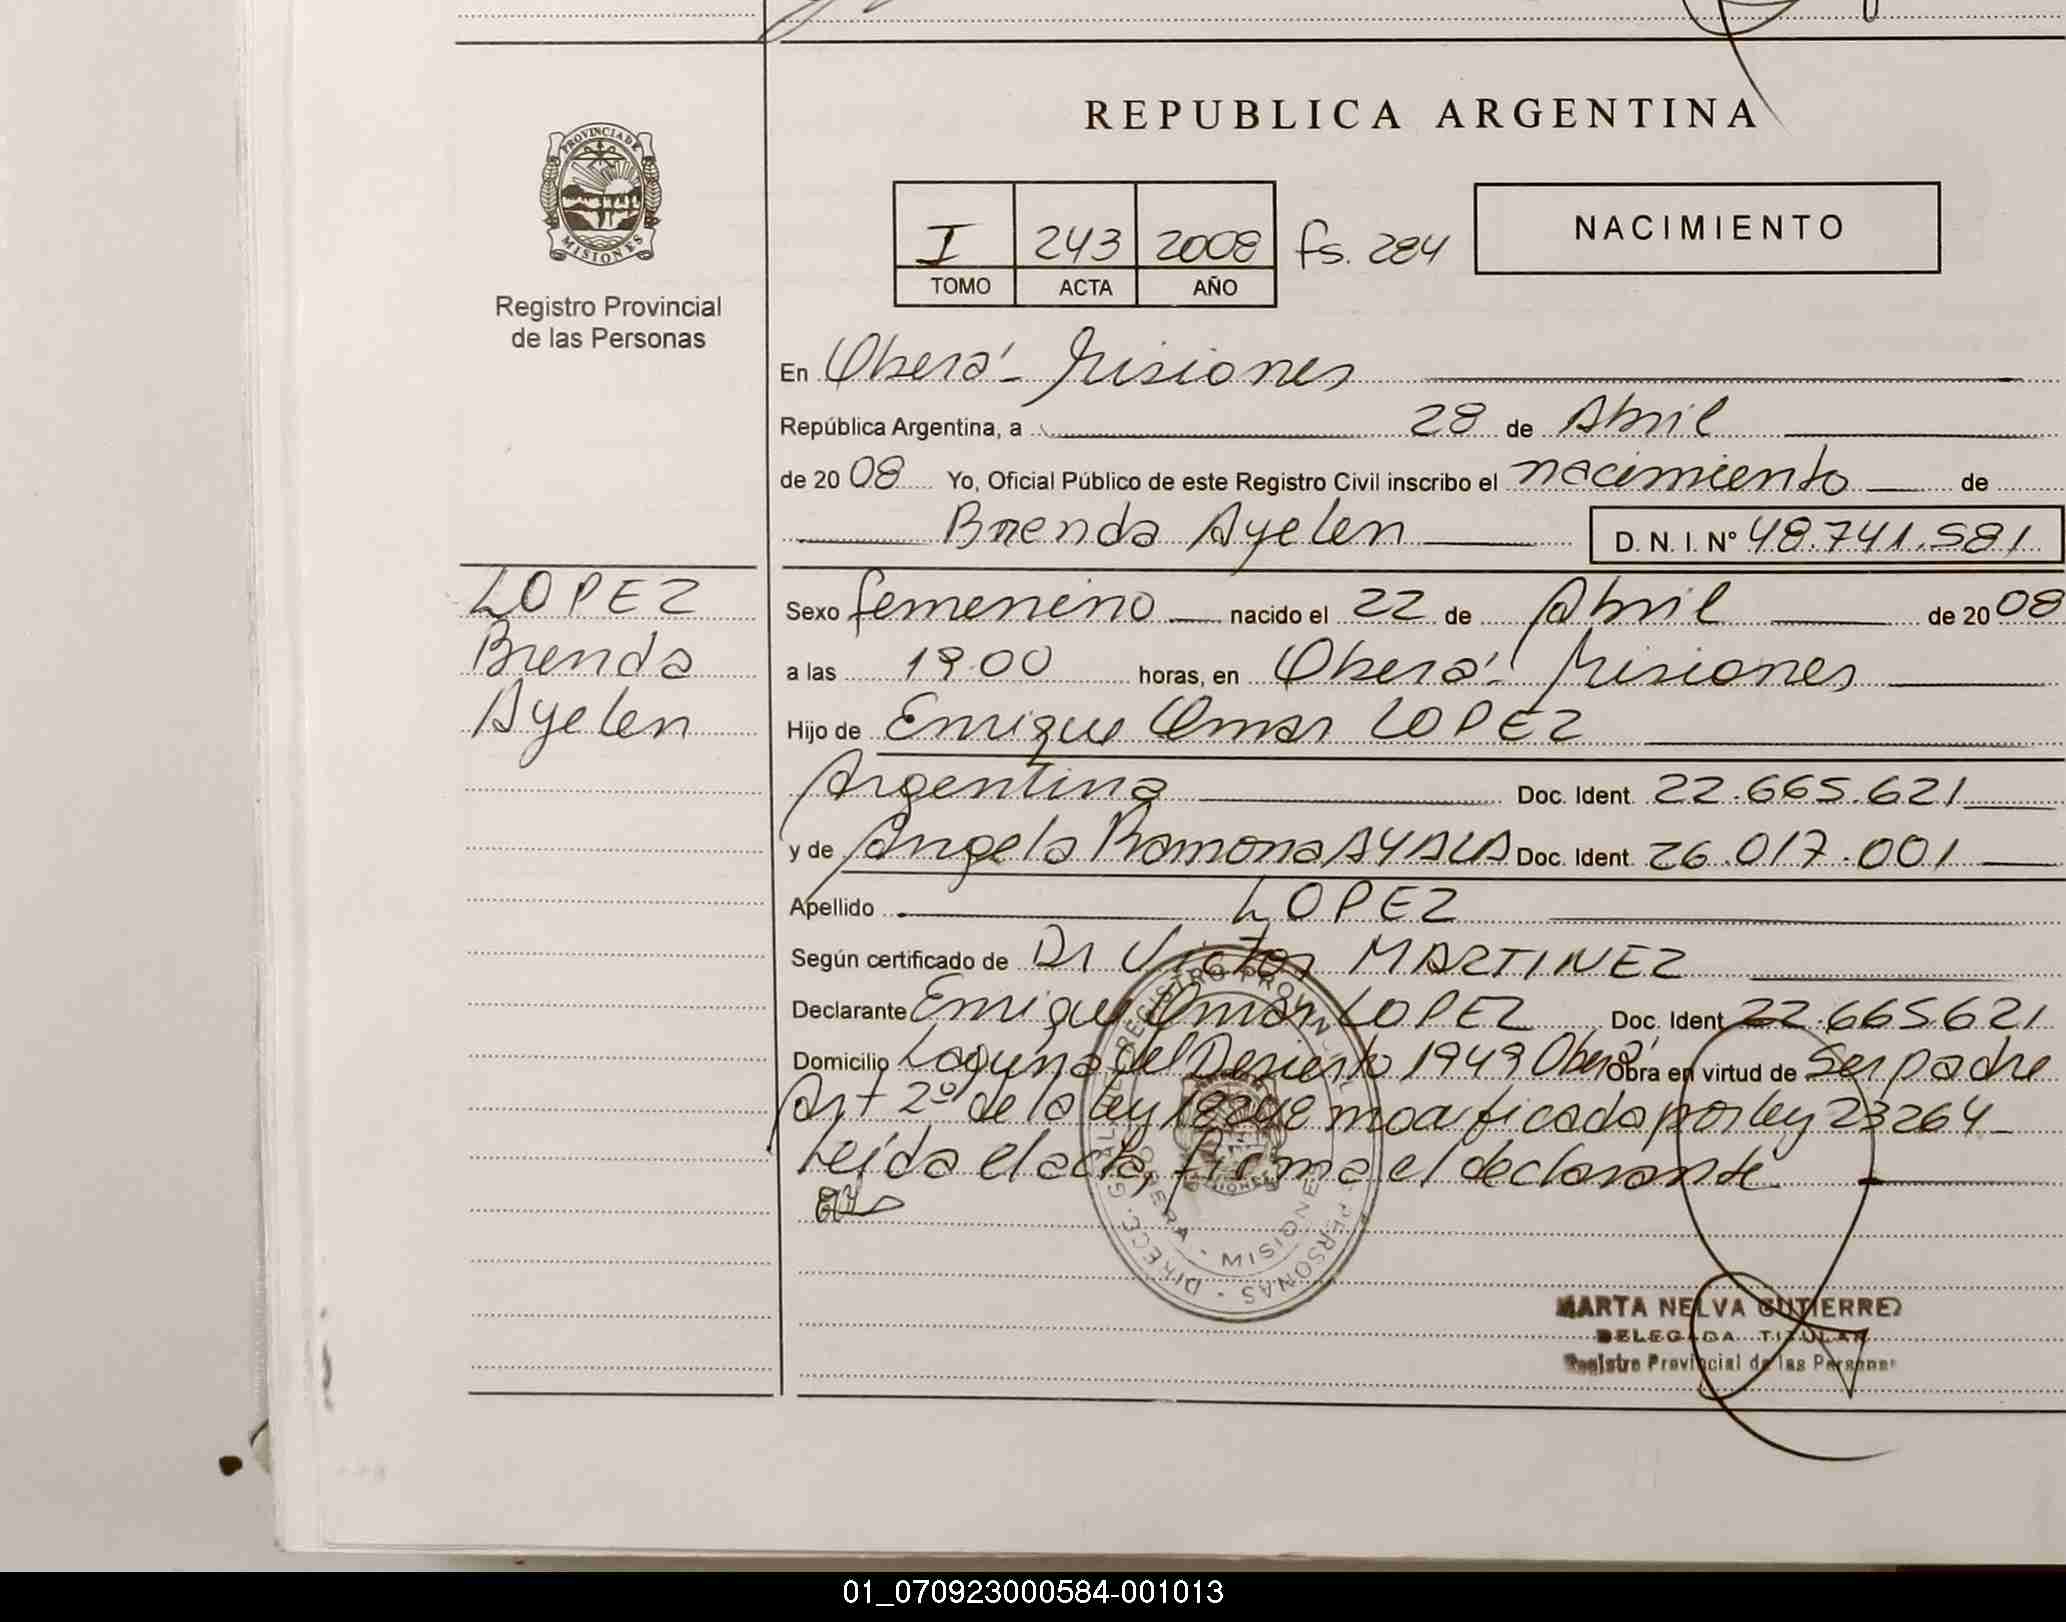 REPUBLICA ARGENTINA
PROVINCIA DE
MISIONES
Registro Provincial
de las Personas
I 243 2008 fs. 284
TOMO ACTA AÑO
NACIMIENTO
En Oberá - Misiones
República Argentina, a 28 de Abril
de 2008 Yo, Oficial Público de este Registro Civil inscribo el nacimiento de
Brenda Ayelen D. N. I. N° 48.741.581
LOPEZ
Brenda
Ayelen
Sexo femenino nacido el 22 de Abril de 2008
a las 19.00 horas, en Oberá - Misiones
Hijo de Enrique Omar LOPEZ
Argentina Doc. Ident. 22.665.621
y de Angela Ramona AYALA Doc. Ident. 26.017.001
Apellido LOPEZ
Según certificado de Dr Victor MARTINEZ
Declarante Enrique Omar LOPEZ Doc. Ident 22.665621
Domicilio Laguna del Desierto 1949 Oberá Obra en virtud de Ser padre
Art 2º de la ley 18248 modificada por ley 23264 -
Leída el acta, firma el declarante
DIRECC. GRAL. REGISTRO PROVINCIAL PERSONAS
OBERA - MISIONES
MARTA NELVA GUTIERREZ
DELEGADA TITULAR
Registro Provincial de las Personas
01_070923000584-001013